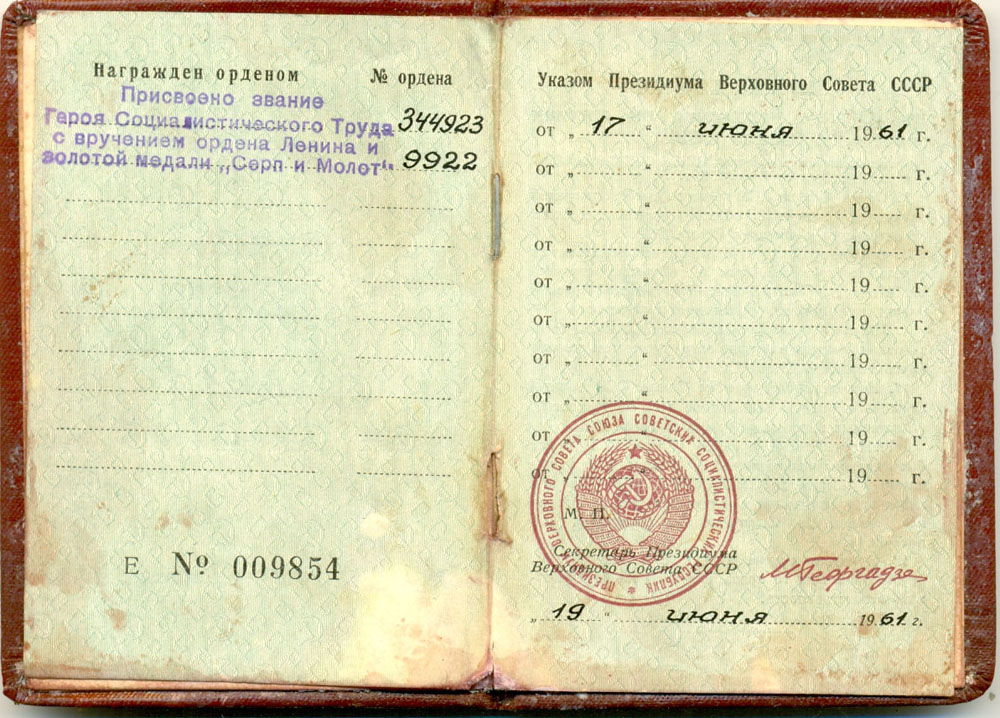 Награжден орденом № ордена
Присвоено звание
Героя Социалистического Труда 344923
с вручением ордена Ленина и
золотой медали „Серп и Молот“ 9922
Е № 009854
Указом Президиума Верховного Совета СССР
от „ 17 “ июня 1961 г.
от „ “ 19 г.
от „ “ 19 г.
от „ “ 19 г.
от „ “ 19 г.
от „ “ 19 г.
от „ “ 19 г.
от „ “ 19 г.
от „ “ 19 г.
от „ “ 19 г.
ПРЕЗИДИУМ ВЕРХОВНОГО СОВЕТА СОЮЗА СОВЕТСКИХ СОЦИАЛИСТИЧЕСКИХ РЕСПУБЛИК
М. П.
Секретарь Президиума
Верховного Совета СССР МГеоргадзе
„ 19 “ июня 1961 г.